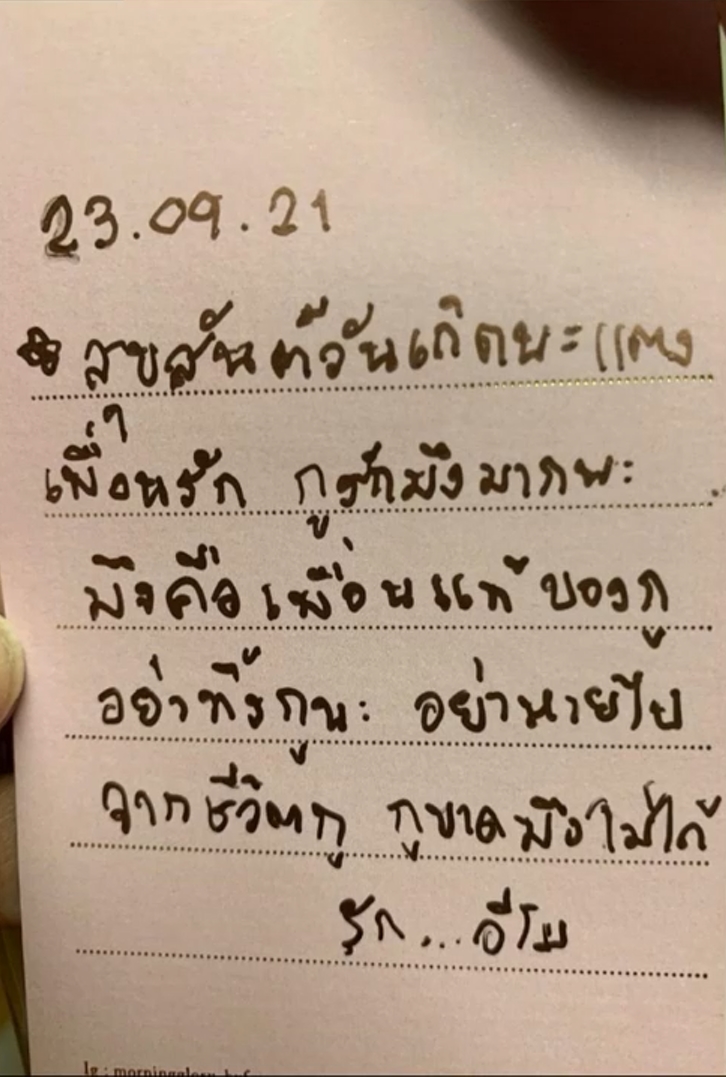 23.09.21
สุขสันต์วันเกิดนะแตง
เพื่อนรัก กูรักมึงมากนะ
มึงคือเพื่อนแท้ของกู
อย่าทิ้งกูนะ อย่าหายไป
จากชีวิตกู กูขาดมึงไม่ได้
รัก...อีโม
Ig : morningglory